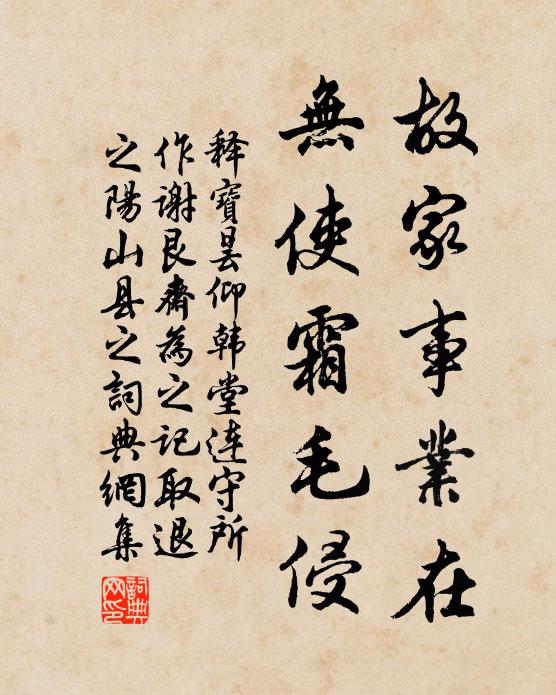 故家事業在
無使霜毛侵
释寶曇仰韩堂连守所
作謝艮齋為之记取退
之陽山县之詞典網集
詞典网印